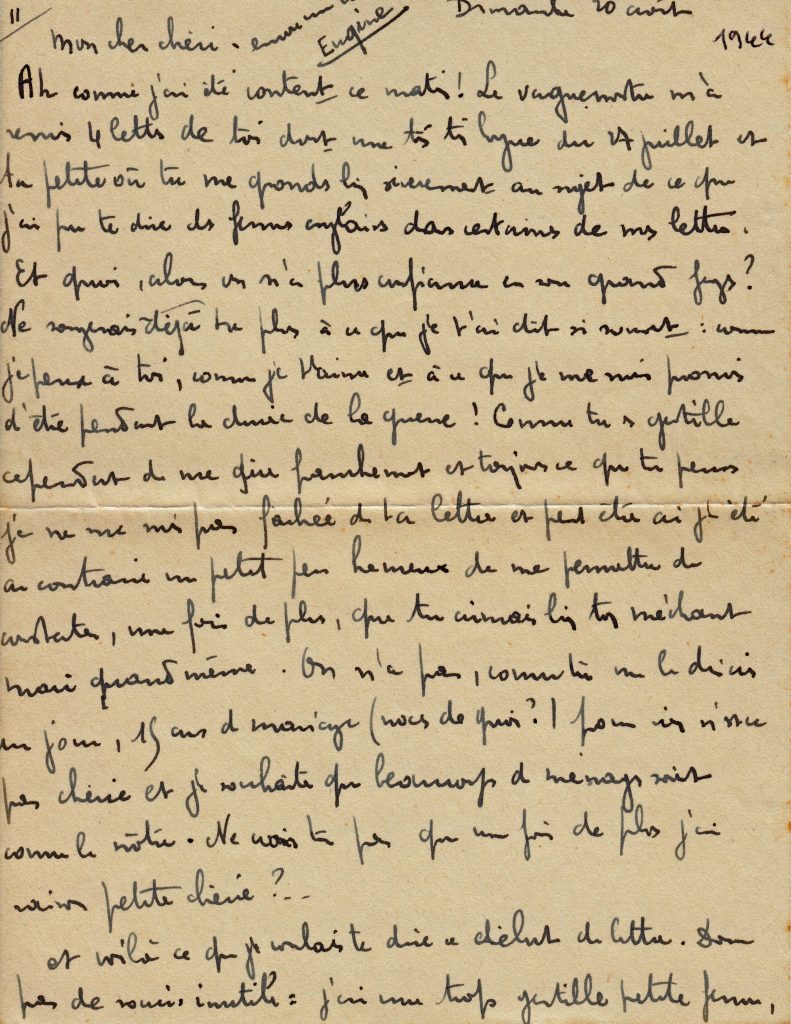 11
Dimanche 20 août
1944
Mon cher chéri - envoi un
Eugène
Ah comme j'ai été content ce matin! Le vaguemestre m'a
remis 4 lettres de toi dont une très très longue du 27 juillet et
ta petite où tu me gronds bien sincèrement au sujet de ce que
j'ai pu te dire des femmes anglaises dans certaines de mes lettres.
Et quoi, alors on n'a plus confiance en son grand fizs?
Ne songerais déjà tu plus à ce que je t'ai dit si souvent : comme
je pense à toi, comme je t'aime et à ce que je me suis promis
d'être pendant la durée de la guerre! Comme tu es gentille
cependant de me dire franchement et toujours ce que tu penses
je ne me suis pas fachée de ta lettre et peut être ai je été
au contraire un petit peu heureux de me permettre de
constater, une fois de plus, que tu aimais bien ton méchant
mari quand même. On n'a pas, comme tu me le disais
un jour, 15 ans de mariage (noces de quoi?) pour rien n'est ce
pas chérie et je souhaite que beaucoup de ménages soient
comme le nôtre. Ne crois tu pas que une fois de plus j'ai
raison petite chérie?--
et voilà ce que je voulais te dire en début de lettre. Donc
pas de soucis inutiles = j'ai une trop gentille petite femme,